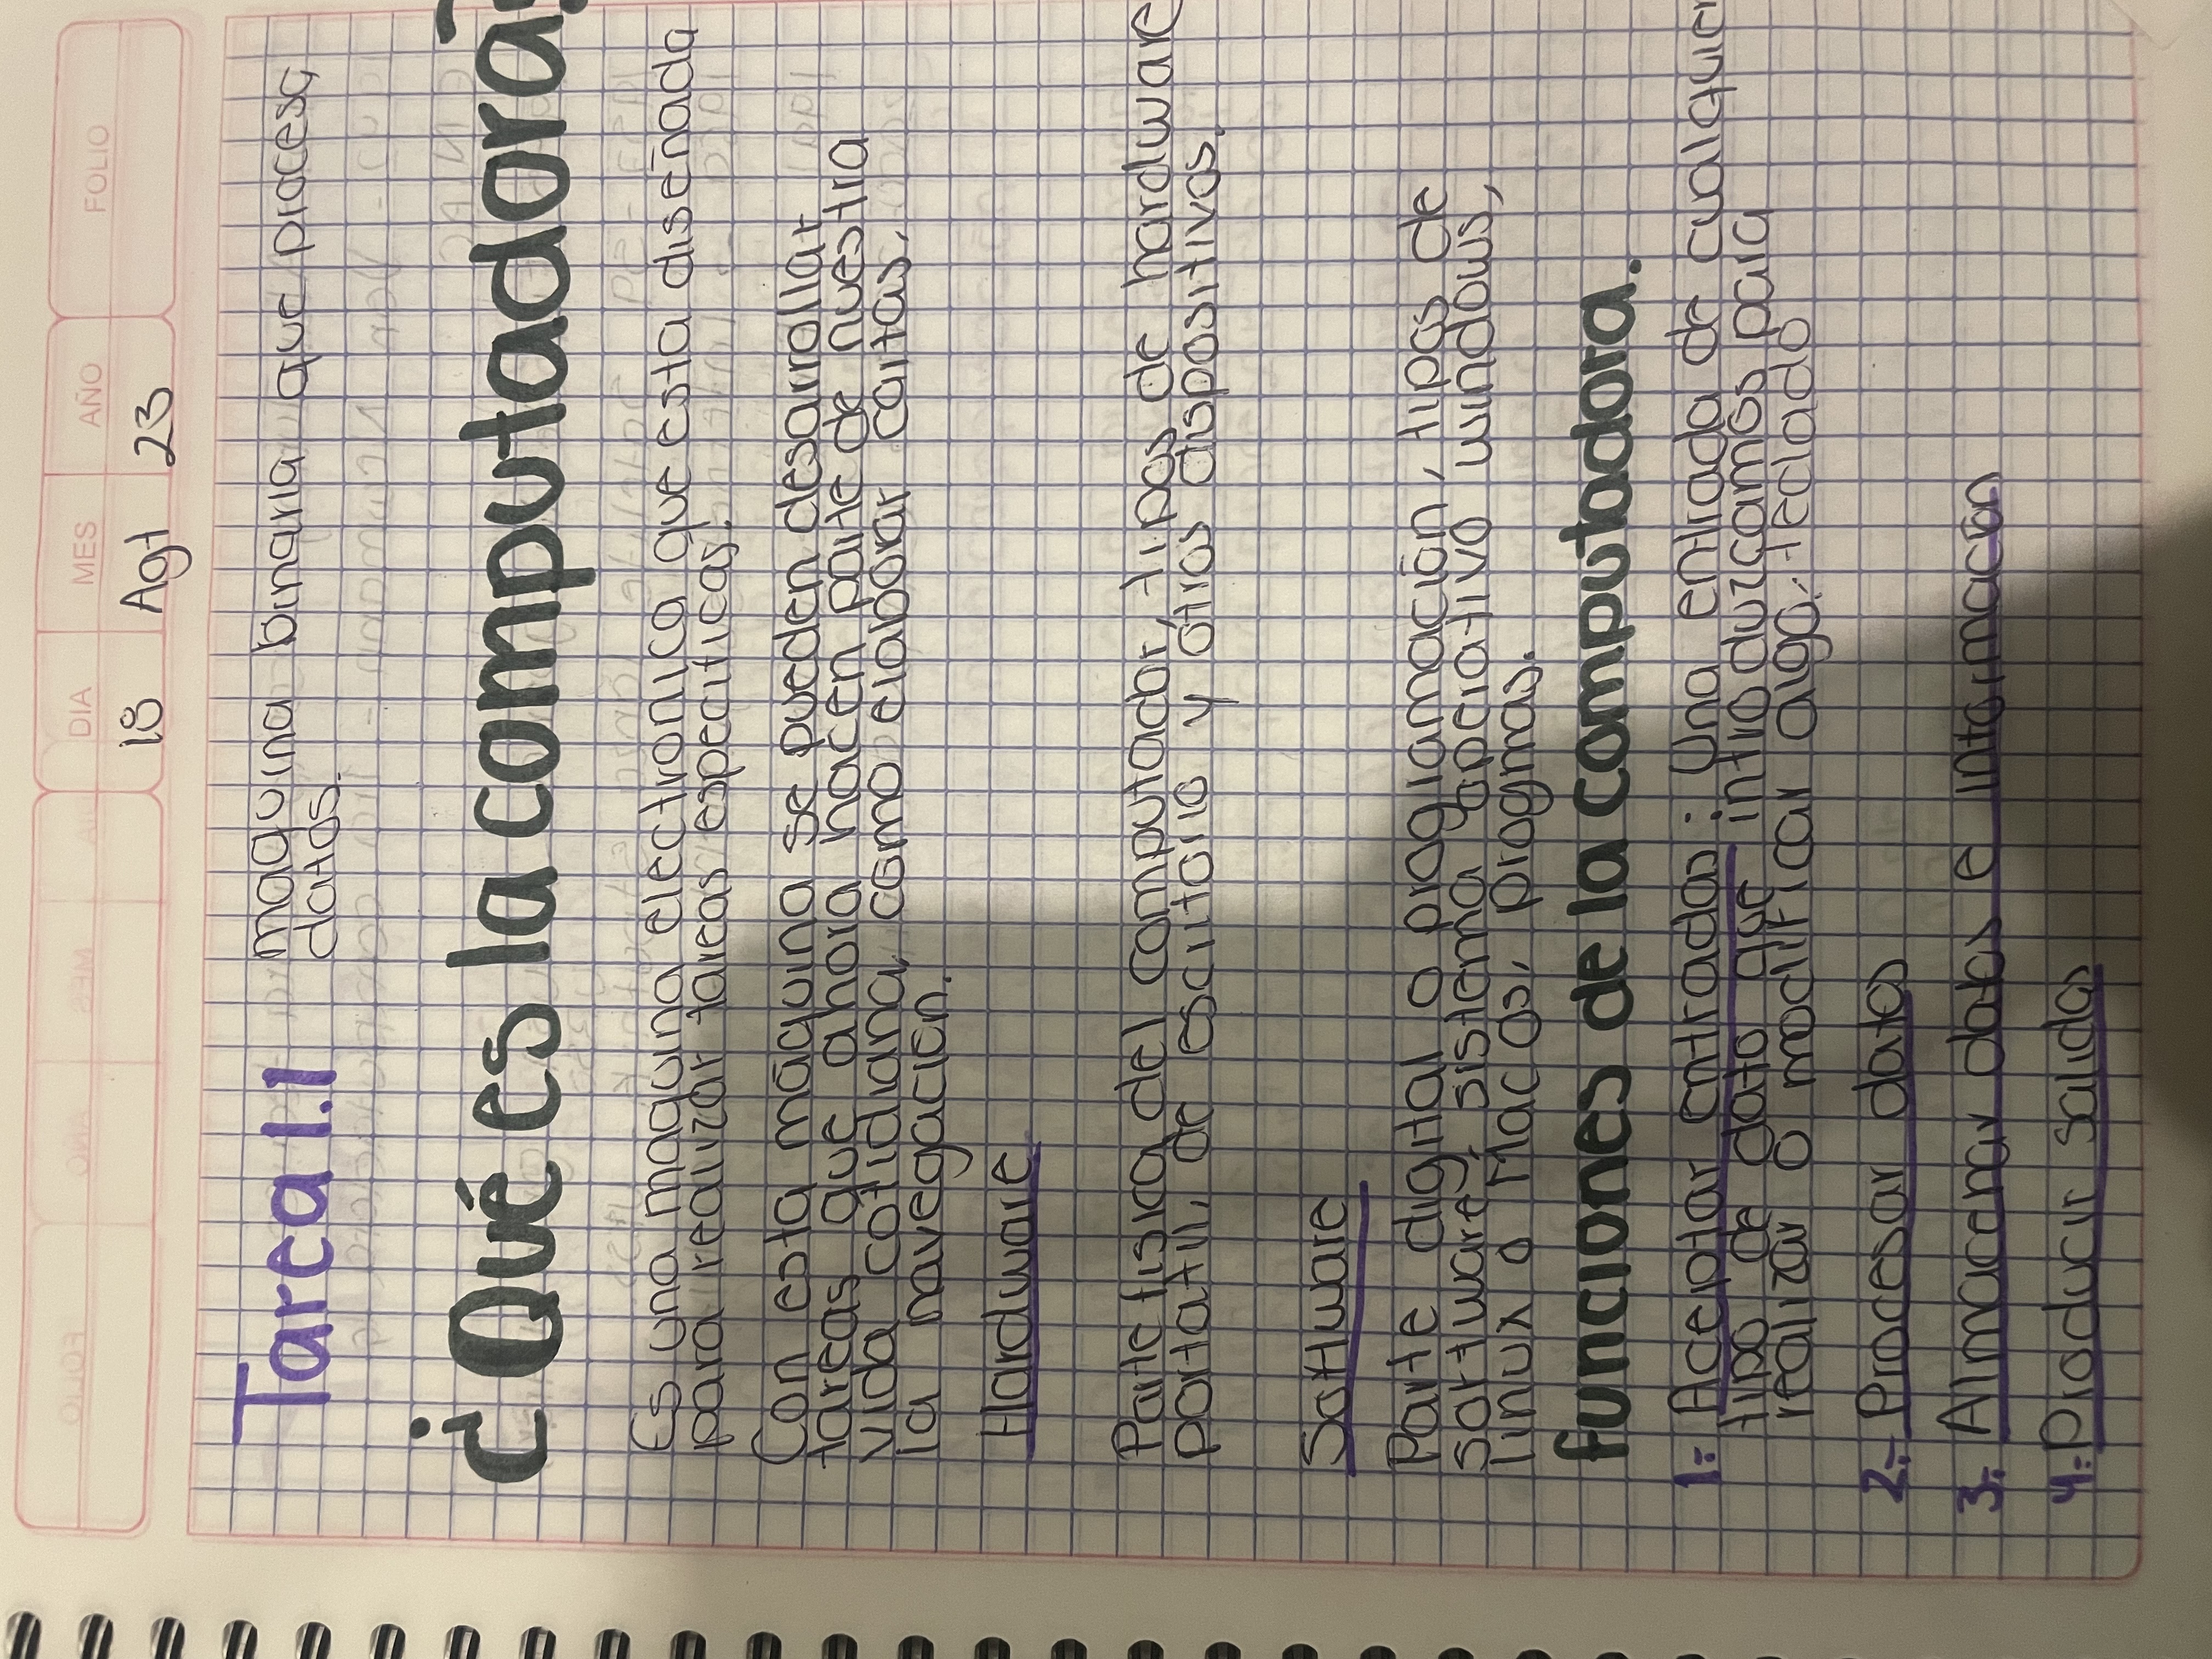 DIA MES AÑO FOLIO
18 Agt 23
Tarea 1.1
maquina binaria que procesa
datos.
¿Qué es la computadora?
Es una maquina electronica que esta diseñada
para realizar tareas especificas.
Con esta máquina se pueden desarrollar
tareas que ahora hacen parte de nuestra
vida cotidiana, como elaborar cartas,
la navegación.
Hardware
Parte fisica del computador, tipos de hardware
portatil, de escritorio y otros dispositivos.
Software
Parte digital o programación, tipos de
software, sistema operativo windows,
linux o Mac os, progrmas.
funciones de la computadora.
1.- Aceptar entradas: Una entrada de cualquier
tipo de dato que introduzcamos para
realizar o modificar algo. teclado
2.- Procesar datos
3.- Almacenar datos e información
4.- Producir salidas